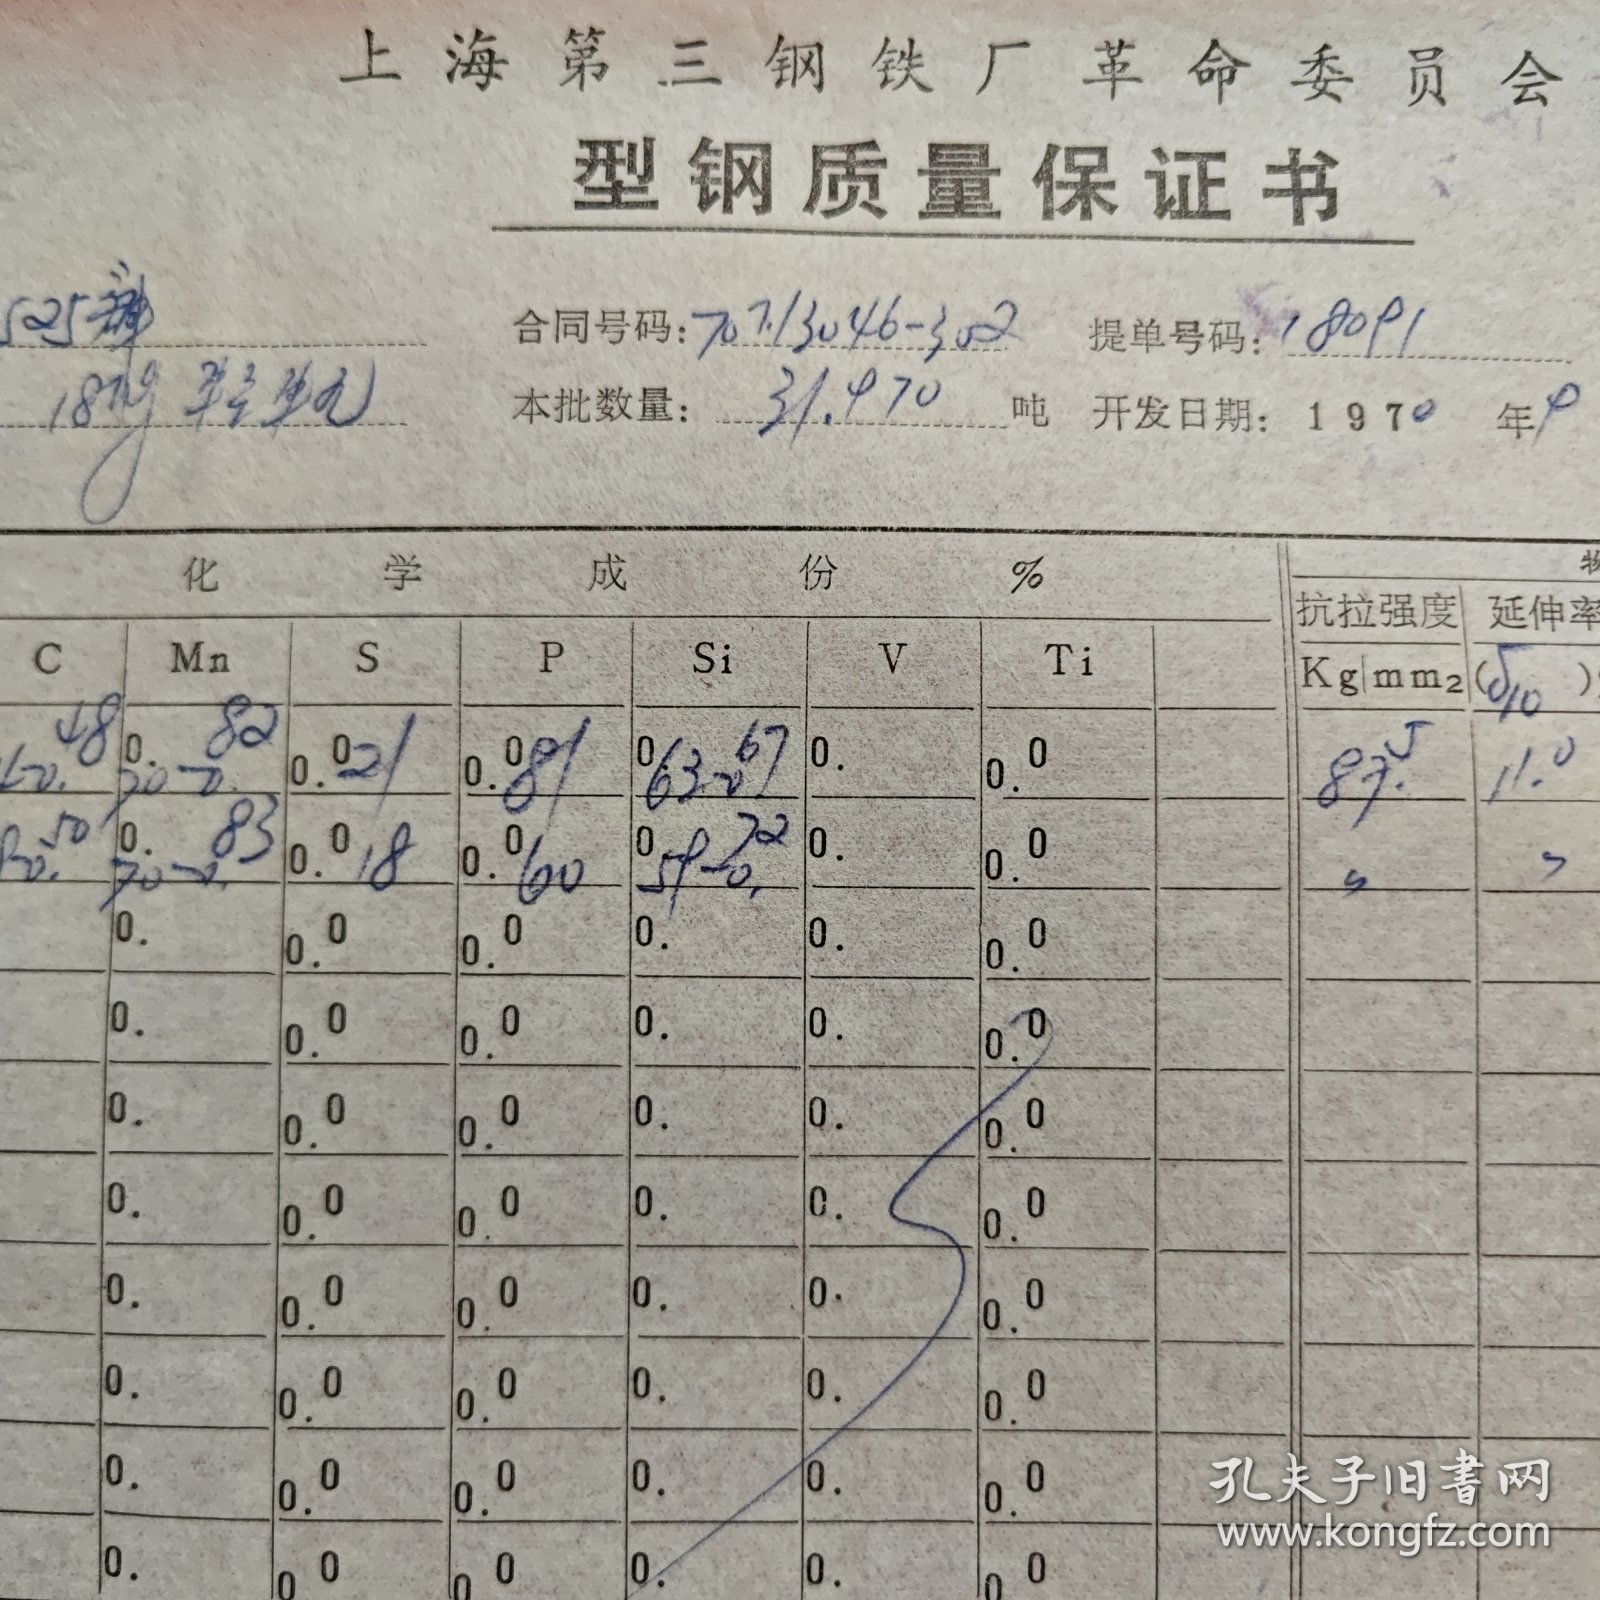 上海第三钢铁厂革命委员会
型钢质量保证书
525 合同号码：707.13046-302 提单号码：18091
本批数量：31.970吨 开发日期：1970年9
化学成份% 物
C Mn S P Si V Ti 抗拉强度 延伸率
Kg/mm2 (δ10)%
48 0.70-0.82 0.021 0.081 0.63-0.67 0. 0.0 87.5 11.0
50 0.70-0.83 0.018 0.060 0.59-0.72 0. 0.0 〃 〃
0. 0.0 0.0 0. 0. 0.0
0. 0.0 0.0 0. 0. 0.0
0. 0.0 0.0 0. 0. 0.0
0. 0.0 0.0 0. 0. 0.0
0. 0.0 0.0 0. 0. 0.0
0. 0.0 0.0 0. 0. 0.0
0. 0.0 0.0 0. 0. 0.0
0. 0.0 0.0 0. 0. 0.0
孔夫子旧书网
www.kongfz.com